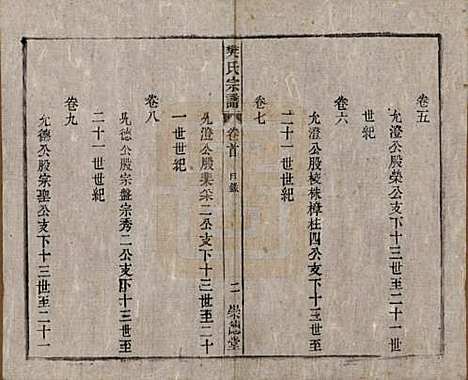 卷五
允澄公股榮公支下十三世至二十一世
世紀
卷六
允澄公股棱株樟柱四公支下十三世至
二十一世世紀
卷七
樊氏宗譜
卷首
目錄
二
崇德堂
允澄公股棐棌二公支下十三世至二十
一世世紀
卷八
允德公股宗盤宗秀二公支下十三世至
二十一世世紀
卷九
允德公股宗聖公支下十三世至二十一